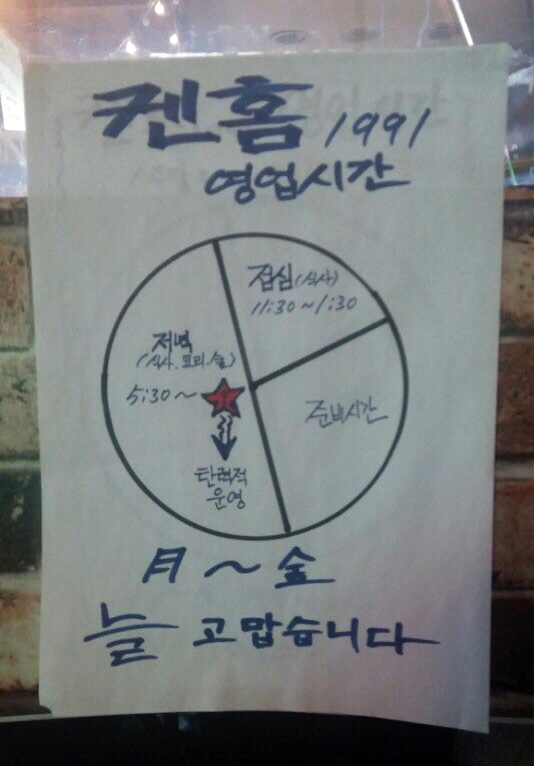 켄홈 1991
영업시간
점심(식사)
11:30~1:30
저녁
(식사.요리.술)
5:30~
탄력적
운영
준비시간
月~金
늘 고맙습니다